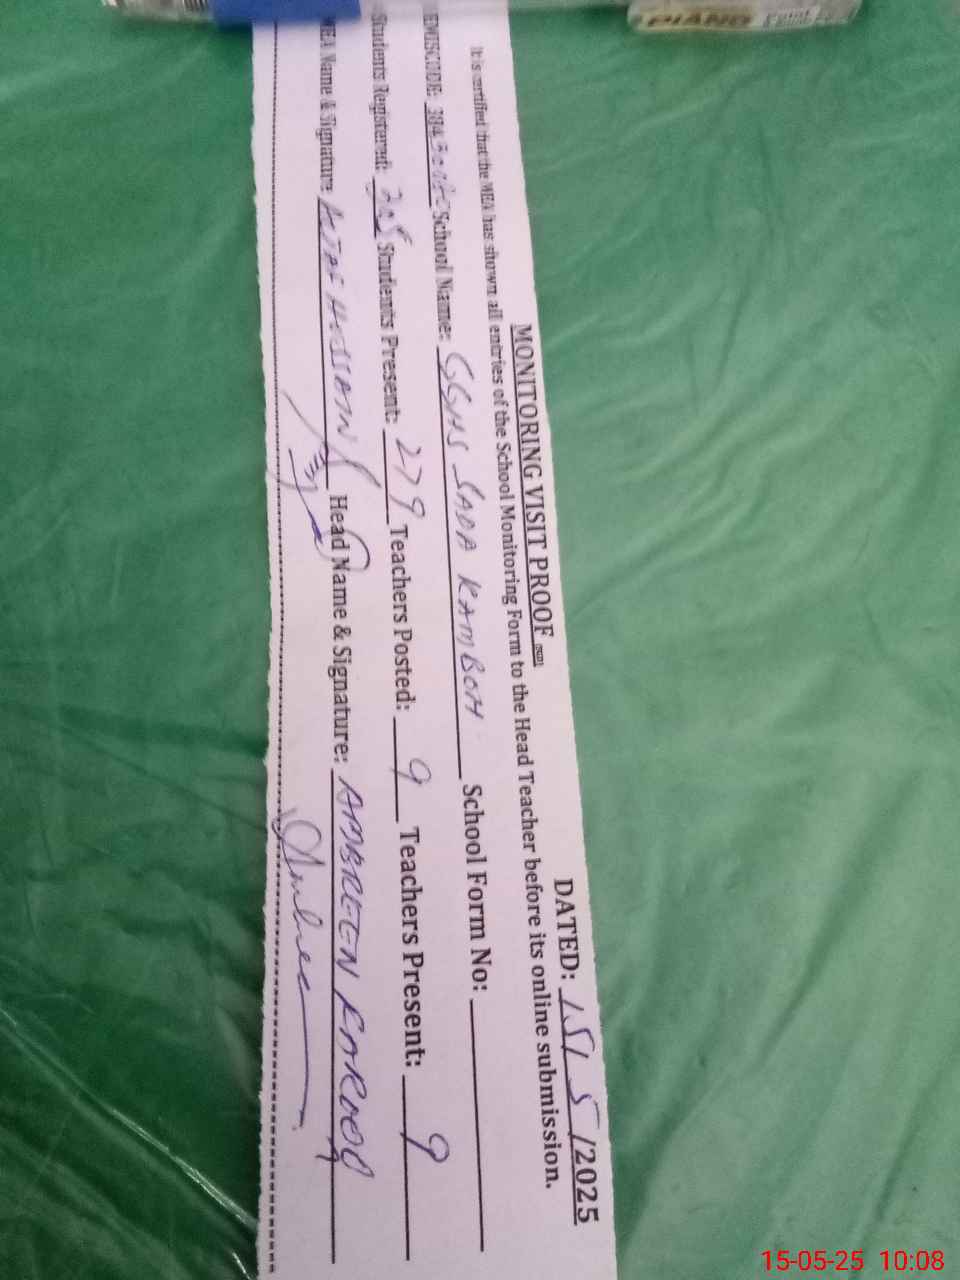 MONITORING VISIT PROOF
DATED: 15/ 5 /2025
It is certified that the MEA has shown all entries of the School Monitoring Form to the Head Teacher before its online submission.
EMISCODE: School Name: GGHS SADA KAMBOH School Form No:
Students Registered: Students Present: 279 Teachers Posted: 9 Teachers Present: 9
MEA Name & Signature Head Name & Signature: AMBREEN
PIANO
15-05-25 10:08